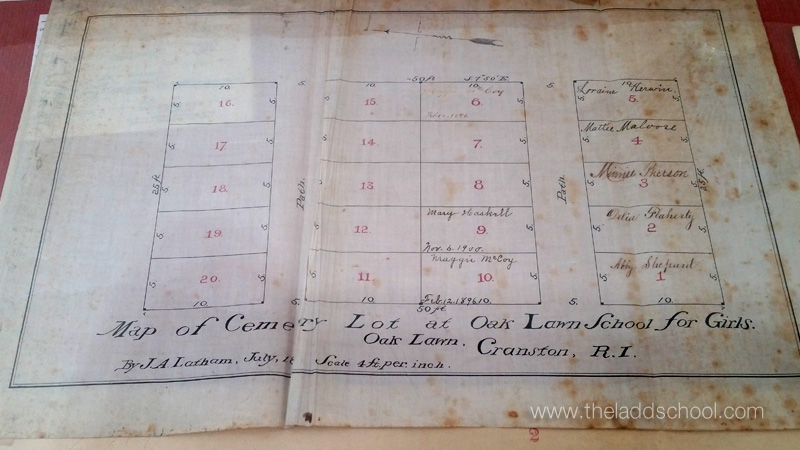 50ft S 7°50' E.
10. 5. 10. 10. 5. 10.
5. 16. 5. 15. 6. Coy 5. Loraine Kerwin. 5. 5.
5. 17. 5. 14. 7. 5. Mattie Malvose 4 5.
25ft 5. 18. 5. Path. 13. 8 Path. 5. Minnie Pherson 3 5. 25ft
5. 19. 5. 12. Mary Haskell 9. 5. Delia Flaherty 2 5.
Nov. 6. 1900.
5. 20. 5. 11. Maggie McCoy 10. 5. Abby Shepard 1 5.
Feb. 12. 1896
10. 5. 10. 10. 5. 10.
50ft
Map of Cemery Lot at Oak Lawn School for Girls.
Oak Lawn, Cranston, R.I.
By J.A Latham, July, 18 Scale 4 ft. per. inch.
www.theladdschool.com
2